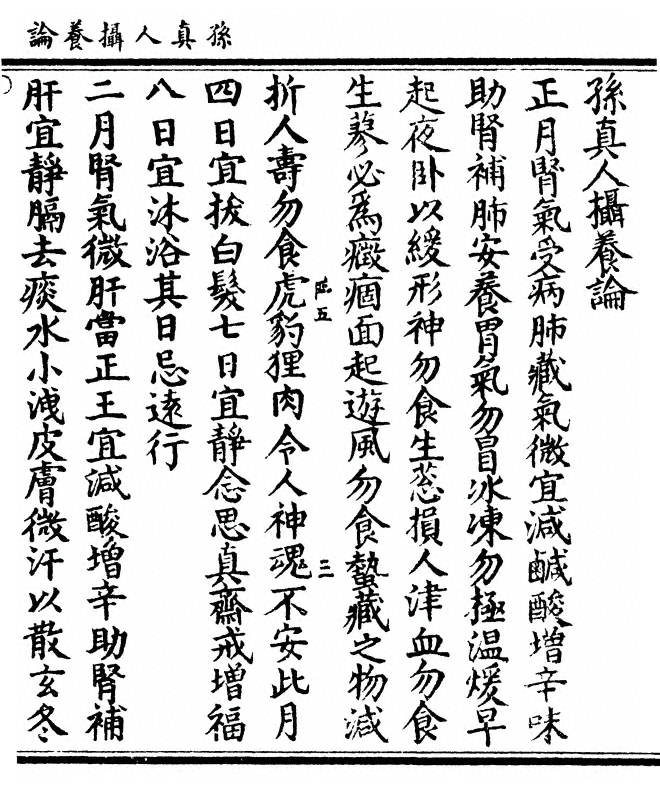 孫真人攝養論
孫真人攝養論
正月腎氣受病肺藏氣微宜減鹹酸增辛味
助腎補肺安養胃氣勿冒冰凍勿極温煖早
起夜卧以緩形神勿食生葱損人津血勿食
生蓼必爲癥痼面起遊風勿食蟄藏之物減
五
三
折人壽勿食虎豹狸肉令人神魂不安此月
四日宜拔白髮七日宜靜念思真齋戒增福
八日宜沐浴其日忌遠行
二月腎氣微肝當正王宜減酸增辛助腎補
肝宜靜膈去痰水小洩皮膚微汗以散玄冬